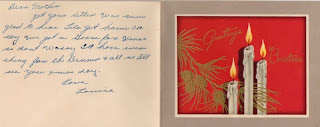 Dear Mother
got your letter was sure
glad to hear Lela got home O.K.
say we got a Goose for Xmas
so dont worry I'll have every
thing for the Dinner & all so I'll
see you Xmas day.
Love
Louise
Greetings
Christmas